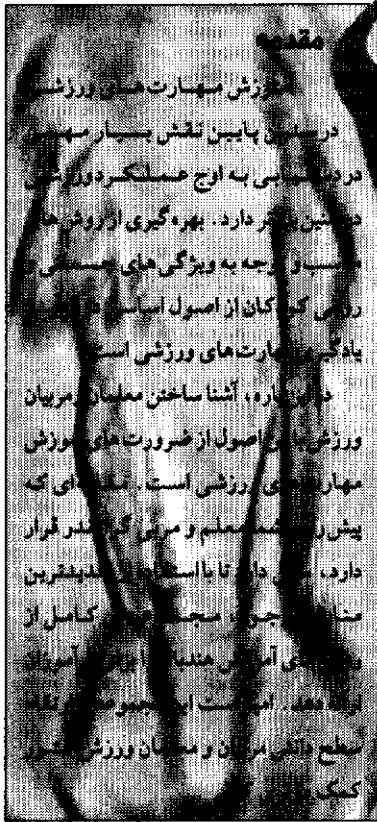 مقدمه
آموزش مهارت های ورزشی
در سنین پایین نقش بسیار مهمی
در دستیابی به اوج عملکرد ورزشی
در سنین بالاتر دارد. بهره گیری از روش های
مناسب و توجه به ویژگی های جسمی و
روحی کودکان از اصول اساسی در
یادگیری مهارت های ورزشی است.
در این باره، آشنا ساختن معلمان و مربیان
ورزش با این اصول از ضرورت های آموزش
مهارت های ورزشی است. مقاله ای که
پیش روی شما معلم و مربی گرانقدر قرار
دارد، سعی دارد تا با استفاده از جدیدترین
منابع موجود، مجموعه کامل از
آموزش هندبال آموزان
ارائه دهد. امید است این مجموعه
سطح دانش مربیان و معلمان ورزش کشور
کمک